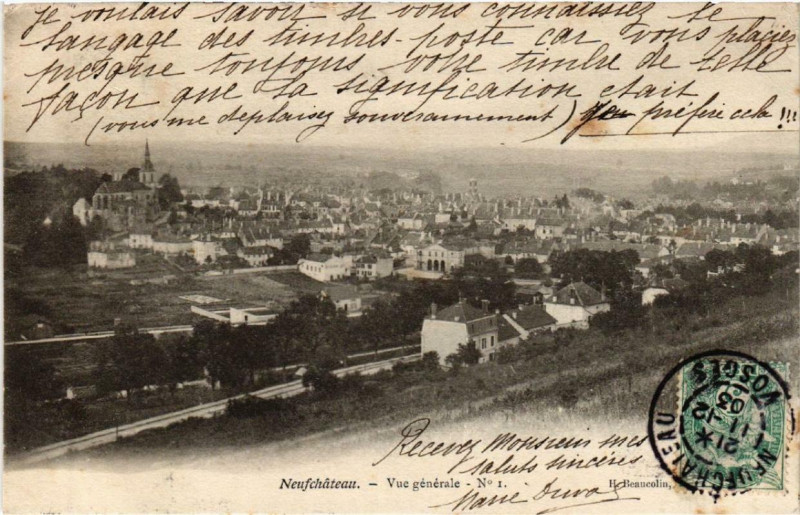 je voulais savoir si vous connaissiez le
langage des timbres-poste car vous placiez
presque toujours votre timbre de telle
façon que la signification était
(vous me déplaisez souverainement) j'en préfère cela !!!
Recevez Monsieur mes
saluts sincères
Marie Duval
Neufchâteau. - Vue générale - No 1.
H. Beaucolin,
NEUFCHATEAU
VOSGES
21
11-12
03